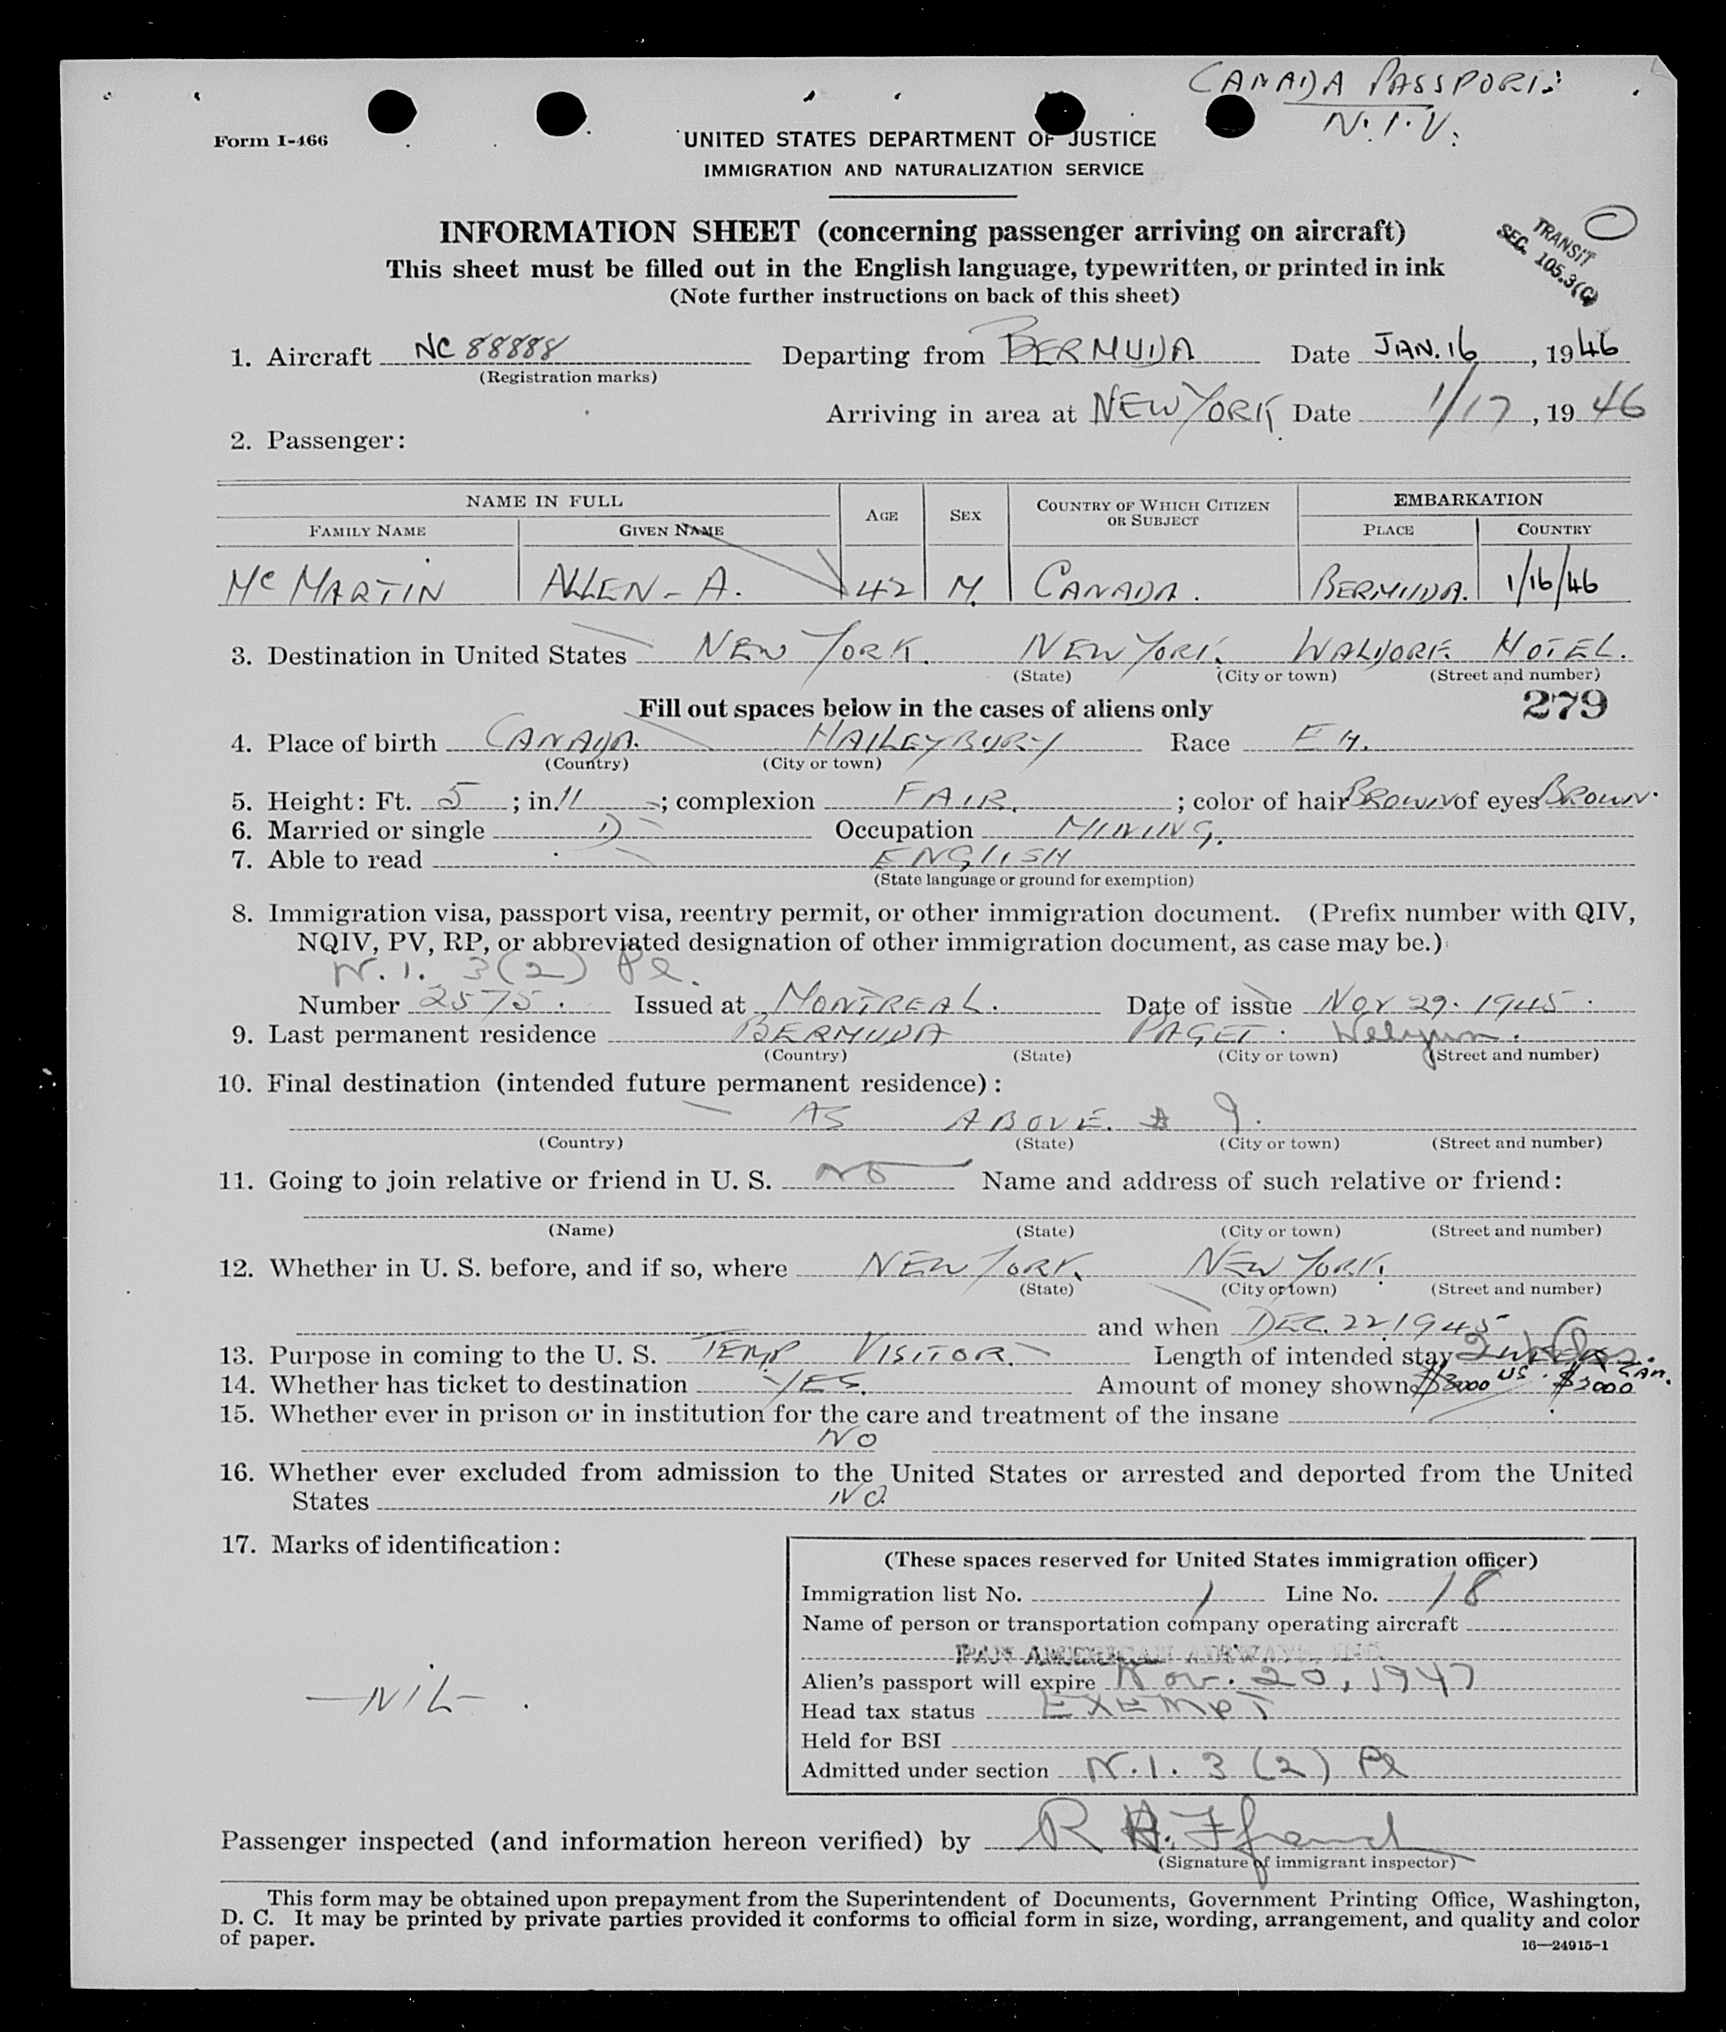 CANADA PASSPORT.
N.I.V.
Form I-466
UNITED STATES DEPARTMENT OF JUSTICE
IMMIGRATION AND NATURALIZATION SERVICE
INFORMATION SHEET (concerning passenger arriving on aircraft)
TRANSIT
SEC. 105.3(C)
This sheet must be filled out in the English language, typewritten, or printed in ink
(Note further instructions on back of this sheet)
1. Aircraft NC 88888 Departing from BERMUDA Date JAN. 16, 1946
(Registration marks)
Arriving in area at NEW YORK Date 1/17, 1946
2. Passenger:
NAME IN FULL AGE SEX COUNTRY OF WHICH CITIZEN OR SUBJECT EMBARKATION
FAMILY NAME GIVEN NAME PLACE COUNTRY
Mc MARTIN ALLEN - A. 42 M. CANADA. BERMUDA. 1/16/46
3. Destination in United States NEW YORK. NEW YORK. WALDORF. HOTEL.
(State) (City or town) (Street and number)
Fill out spaces below in the cases of aliens only 279
4. Place of birth CANADA. HAILEYBURY Race
(Country) (City or town)
5. Height: Ft. 5; in. 11; complexion FAIR.; color of hair BROWN of eyes BROWN.
6. Married or single D Occupation MINING.
7. Able to read ENGLISH
(State language or ground for exemption)
8. Immigration visa, passport visa, reentry permit, or other immigration document. (Prefix number with QIV,
NQIV, PV, RP, or abbreviated designation of other immigration document, as case may be.)
N. I. 3 (2) Pl.
Number 2575. Issued at MONTREAL. Date of issue NOV 29. 1945.
9. Last permanent residence BERMUDA PAGET.
(Country) (State) (City or town) (Street and number)
10. Final destination (intended future permanent residence):
AS ABOVE. 9.
(Country) (State) (City or town) (Street and number)
11. Going to join relative or friend in U. S. NO Name and address of such relative or friend:
(Name) (State) (City or town) (Street and number)
12. Whether in U. S. before, and if so, where NEW YORK. NEW YORK.
(State) (City or town) (Street and number)
and when DEC. 22, 1945
13. Purpose in coming to the U. S. TEMP VISITOR. Length of intended stay
14. Whether has ticket to destination YES. Amount of money shown $3000 US. $3000 CAN.
15. Whether ever in prison or in institution for the care and treatment of the insane
NO
16. Whether ever excluded from admission to the United States or arrested and deported from the United
States NO.
17. Marks of identification:
—NIL—.
(These spaces reserved for United States immigration officer)
Immigration list No. 1 Line No. 18
Name of person or transportation company operating aircraft
PAN AMERICAN AIRWAYS, INC.
Alien's passport will expire Nov. 20, 1947
Head tax status EXEMPT
Held for BSI
Admitted under section N.I. 3 (2) Pl
Passenger inspected (and information hereon verified) by R H.
(Signature of immigrant inspector)
This form may be obtained upon prepayment from the Superintendent of Documents, Government Printing Office, Washington,
D. C. It may be printed by private parties provided it conforms to official form in size, wording, arrangement, and quality and color
of paper.
16—24915-1